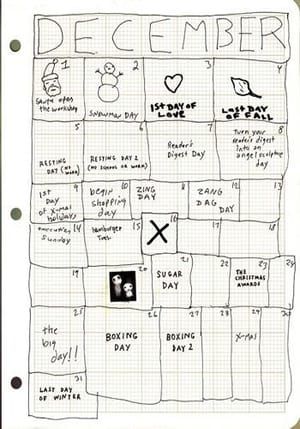 DECEMBER
1
Santa opens
the workshop
2
SNOWMAN DAY
3
1ST DAY OF
LOVE
4
LAST DAY
OF FALL
5
RESTING
DAY (NO WORK)
6
RESTING DAY 2
(NO SCHOOL OR WORK)
7
Reader's
Digest Day
8
Turn your
reader's digest
into an
angel sculpture
day
9
1ST
Day
of X-mas
holidays
10
begin
shopping
day
ZING
DAY
8
ZANG
DAG
DAY
12
13
14
Sunday
15
hamburger
Tues.
16
X
17
18
19
20
21
SUGAR
DAY
22
THE
CHRISTMAS
AWARDS
23
24
25
the
big
day!!
26
BOXING
DAY
27
BOXING
DAY 2
28
X-mas
29
30
31
LAST DAY
OF WINTER